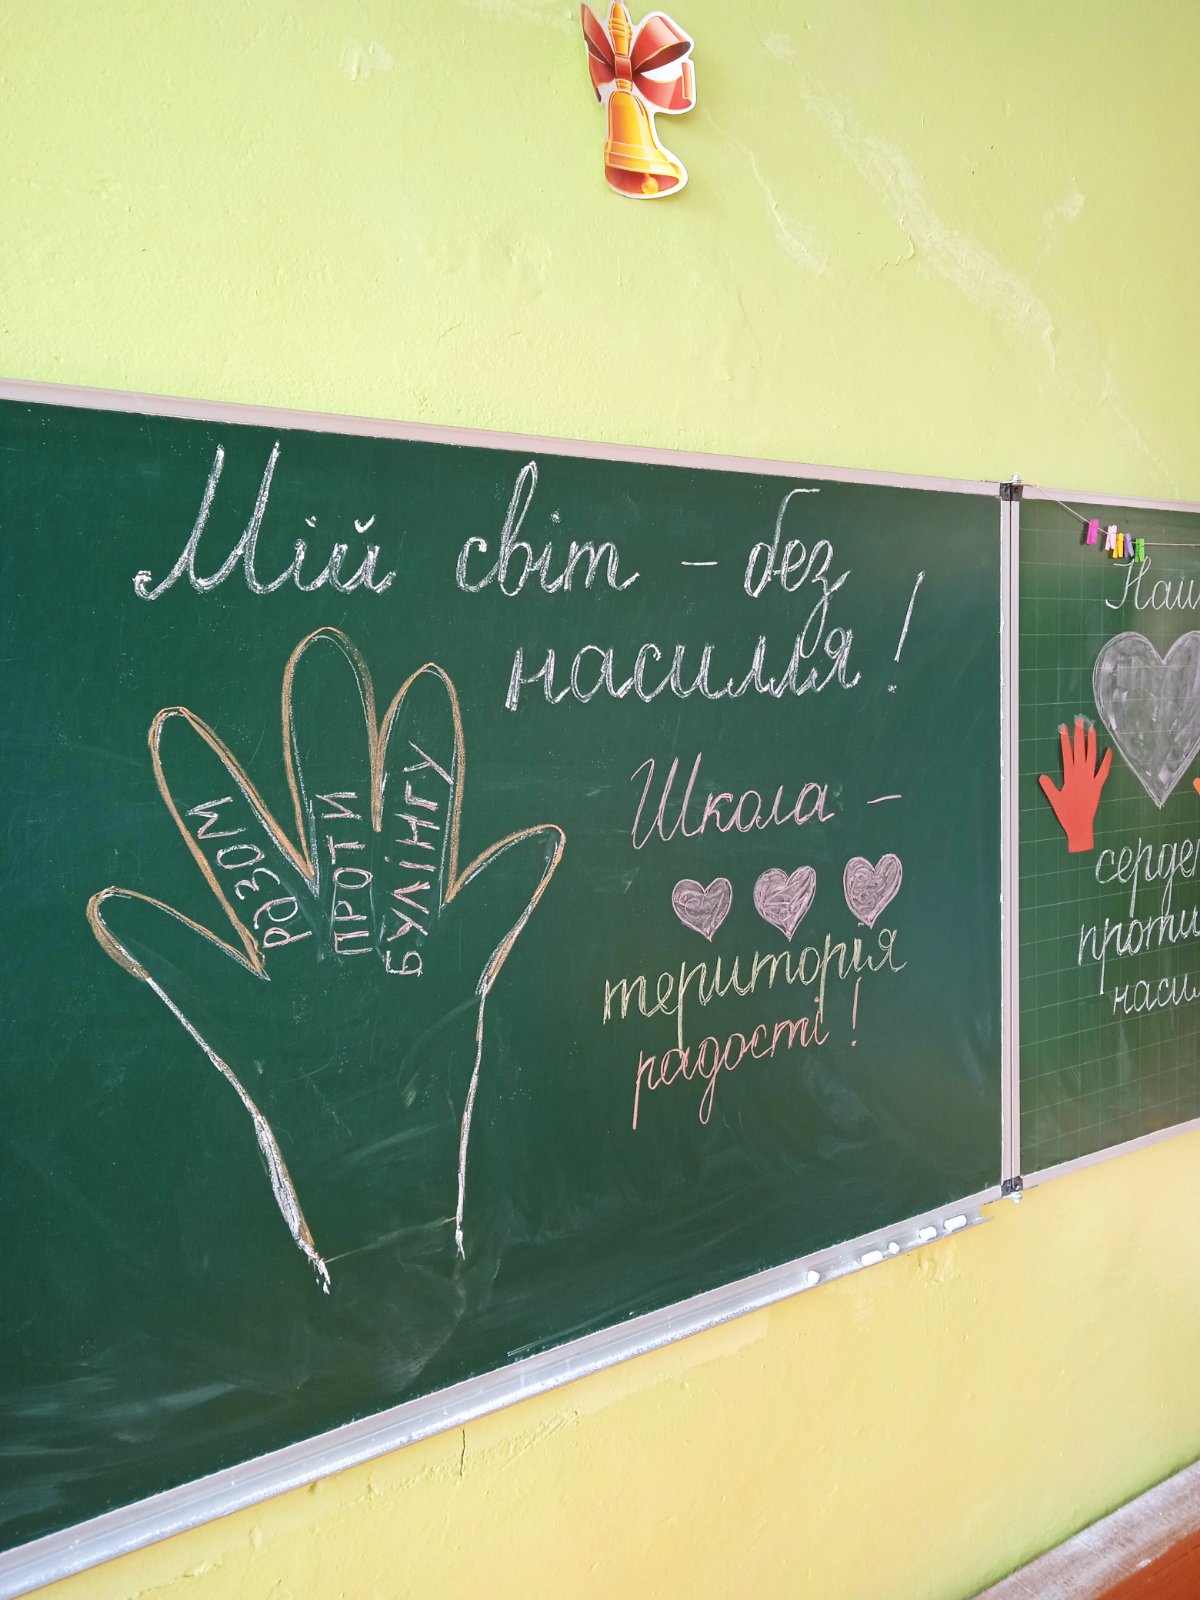 Мій світ - без
насилля!
РАЗОМ
ПРОТИ
БУЛІНГУ
Школа -
територія
радості!
проти